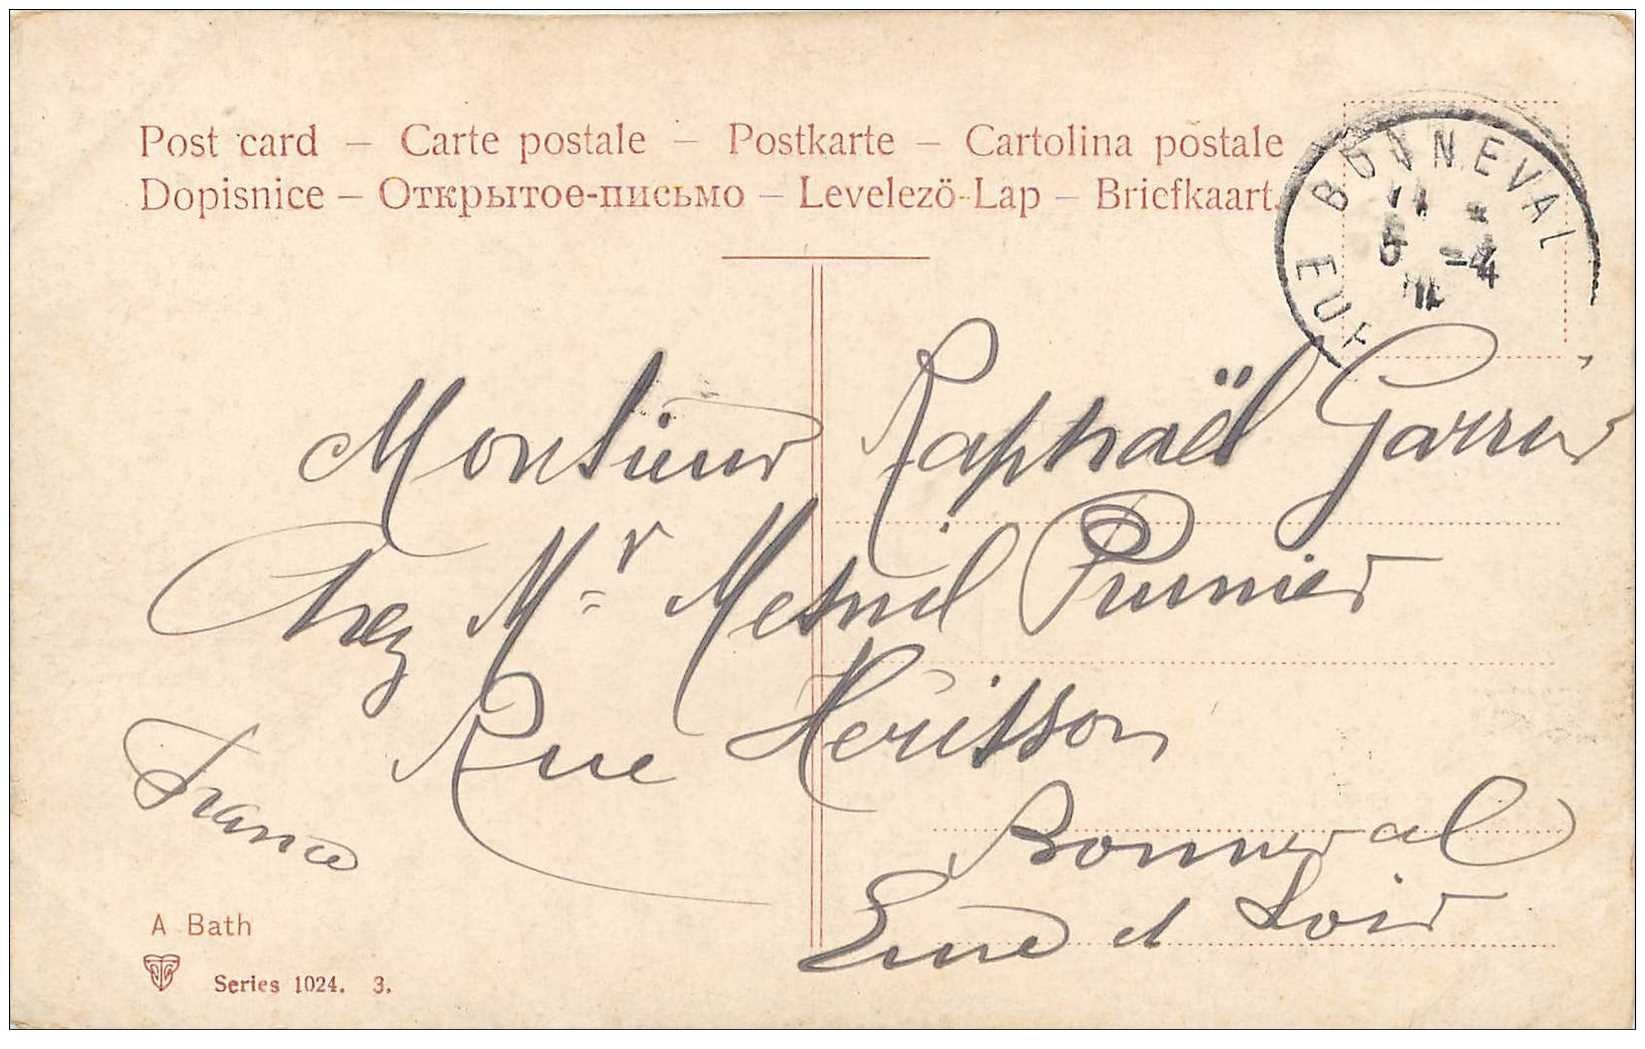 Post card – Carte postale – Postkarte – Cartolina postale
Dopisnice – Открытое-письмо – Levelező-Lap – Briefkaart.
BONNEVAL
5 -4
Monsieur Raphaël
Chez Mr Mesnil Prunier
Rue Hérisson
France
Bonneval
Eure et Loir
A Bath
Series 1024. 3.